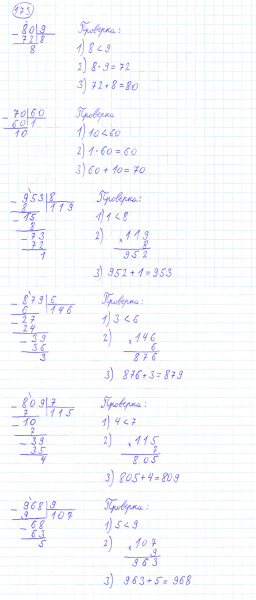 173
- 80 | 9 Проверка:
72 | 8 1) 8 < 9
8 2) 8 · 9 = 72
3) 72 + 8 = 80
- 70 | 60 Проверка
60 | 1 1) 10 < 60
10 2) 1 · 60 = 60
3) 60 + 10 = 70
- 953 | 8 Проверка:
8 | 119 1) 1 < 8
- 15 2) × 119
8 8
- 73 952
72 3) 952 + 1 = 953
1
- 879 | 6 Проверка:
6 | 146 1) 3 < 6
- 27 2) × 146
24 6
- 39 876
36 3) 876 + 3 = 879
3
- 809 | 7 Проверка:
7 | 115 1) 4 < 7
- 10 2) × 115
7 7
- 39 805
35 3) 805 + 4 = 809
4
- 968 | 9 Проверка:
9 | 107 1) 5 < 9
- 68 2) × 107
63 9
5 963
3) 963 + 5 = 968